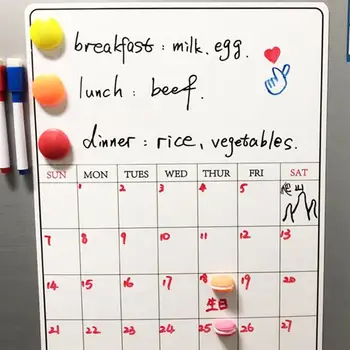 breakfast : milk, egg.
lunch : beef.
dinner : rice, vegetables.
SUN MON TUES WED THUR FRI SAT
1 2 3 4 5 爬山
7 8 9 10 11 12 13
14 15 16 17 18 19 20
生日
21 22 23 24 25 26 27